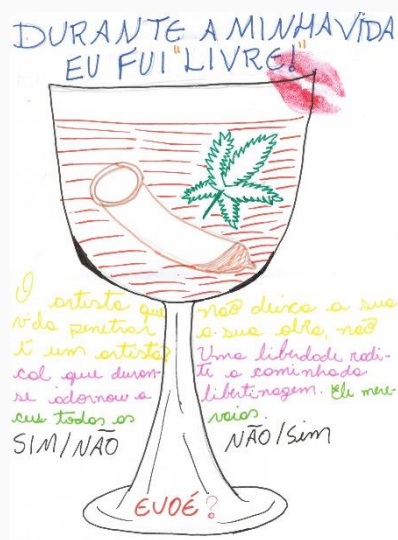 DURANTE A MINHA VIDA
EU FUI "LIVRE!"
O artista que não deixa a sua
vida penetrar a sua obra, não
é um artista Uma liberdade radi-
cal que duran- te a caminhada
se adornou a libertinagem. Ele mere-
ceu todas as vaias.
SIM/NÃO NÃO/Sim
EVOÉ?